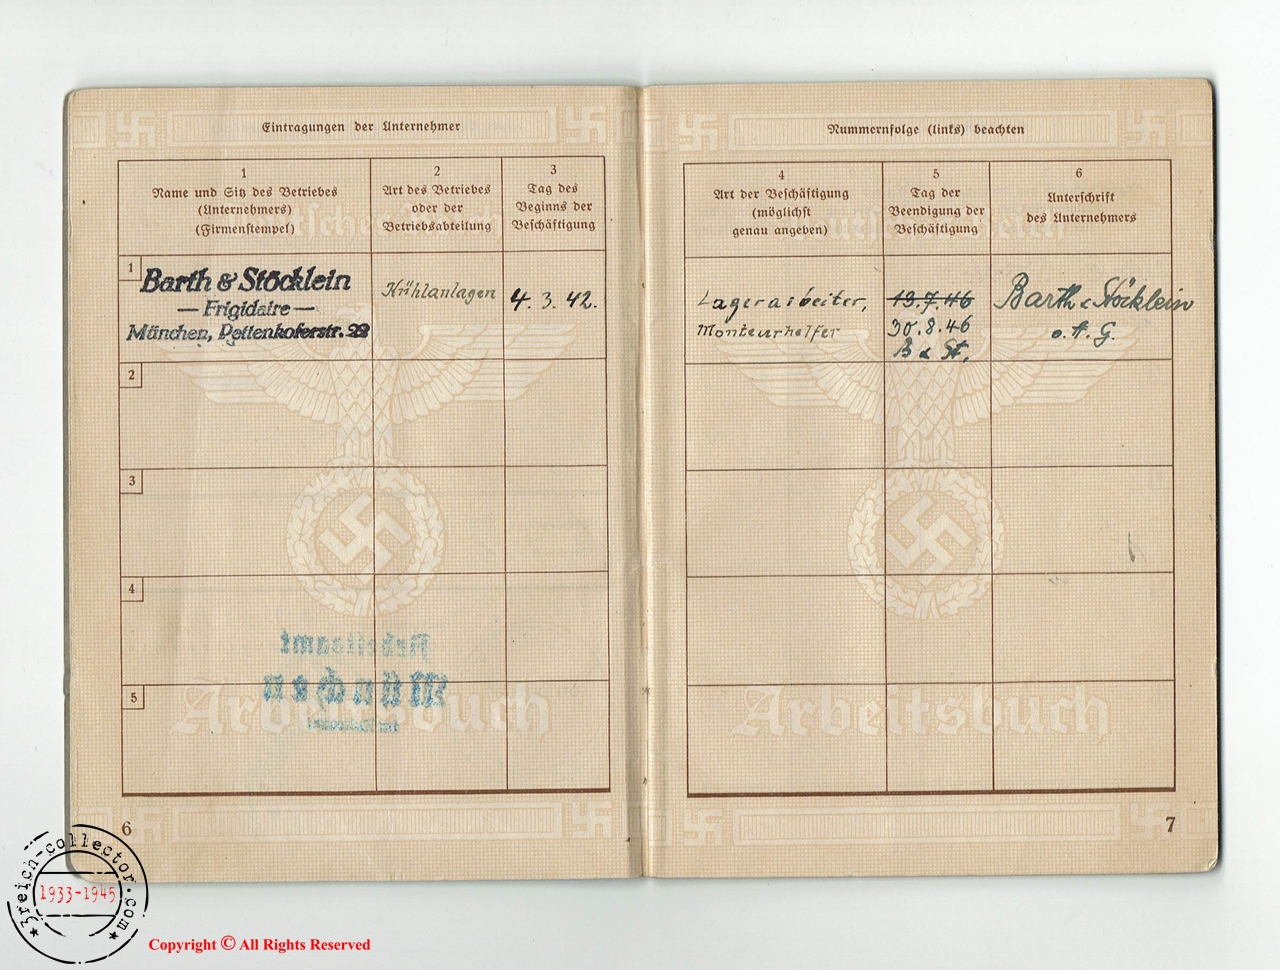 Eintragungen der Unternehmer
1
Name und Sitz des Betriebes
(Unternehmers)
(Firmenstempel)
2
Art des Betriebes
oder der
Betriebsabteilung
3
Tag des
Beginns der
Beschäftigung
1
Barth & Stöcklein
— Frigidaire —
München, Pettenkoferstr. 28
Kühlanlagen
4. 3. 42.
2
3
4
5
Arbeitsamt
München
Arbeitsbuch
6
Nummernfolge (links) beachten
4
Art der Beschäftigung
(möglichst
genau angeben)
5
Tag der
Beendigung der
Beschäftigung
6
Unterschrift
des Unternehmers
Lagerarbeiter,
Monteurhelfer
13.7.46
30.8.46
B & St.
Barth & Stöcklein
o.H.G.
Arbeitsbuch
7
3reich-collector.com
1933-1945
Copyright © All Rights Reserved